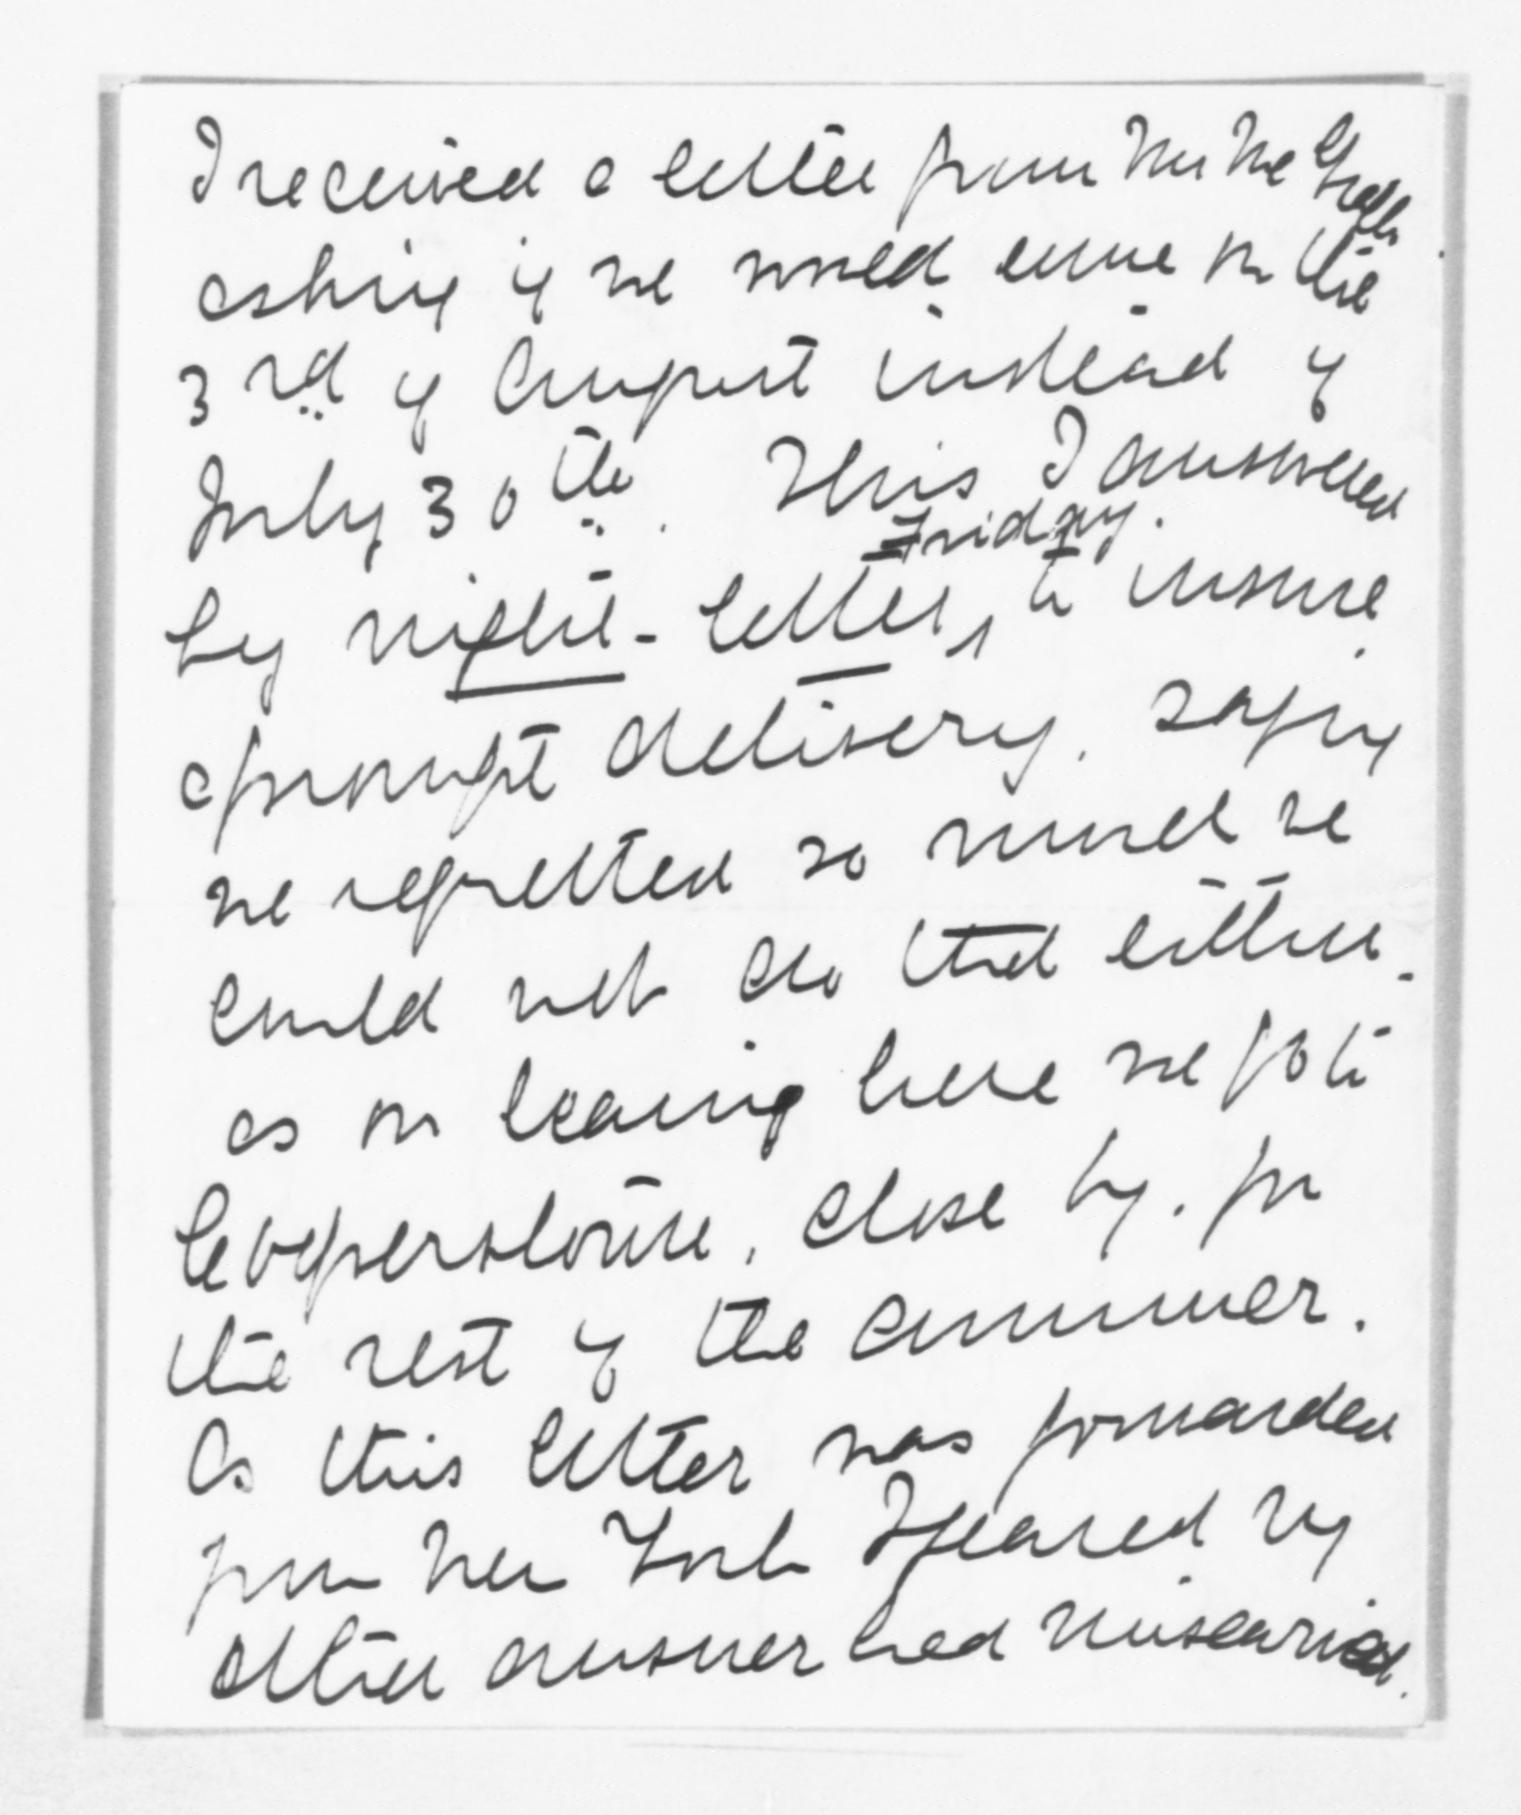 I received a letter from Mr Mc
asking if we would come on the
3rd of August instead of
July 30th. This I answered
Friday.
by night-letter, to insure
a prompt delivery. saying
we regretted so much we
could not do that either.
as on leaving here we go to
Cooperstown, close by. for
the rest of the summer.
As this letter was forwarded
from New York I feared my
other answer had miscarried.